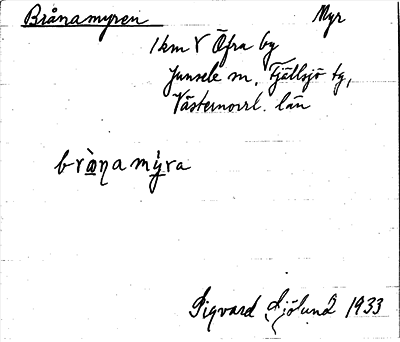 Brånamyren Myr
1 km V Öfra by
Junsele sn, Fjällsjö tg,
Västernorrl. län
bràn̥a mỳra
Sigvard Sjölund 1933